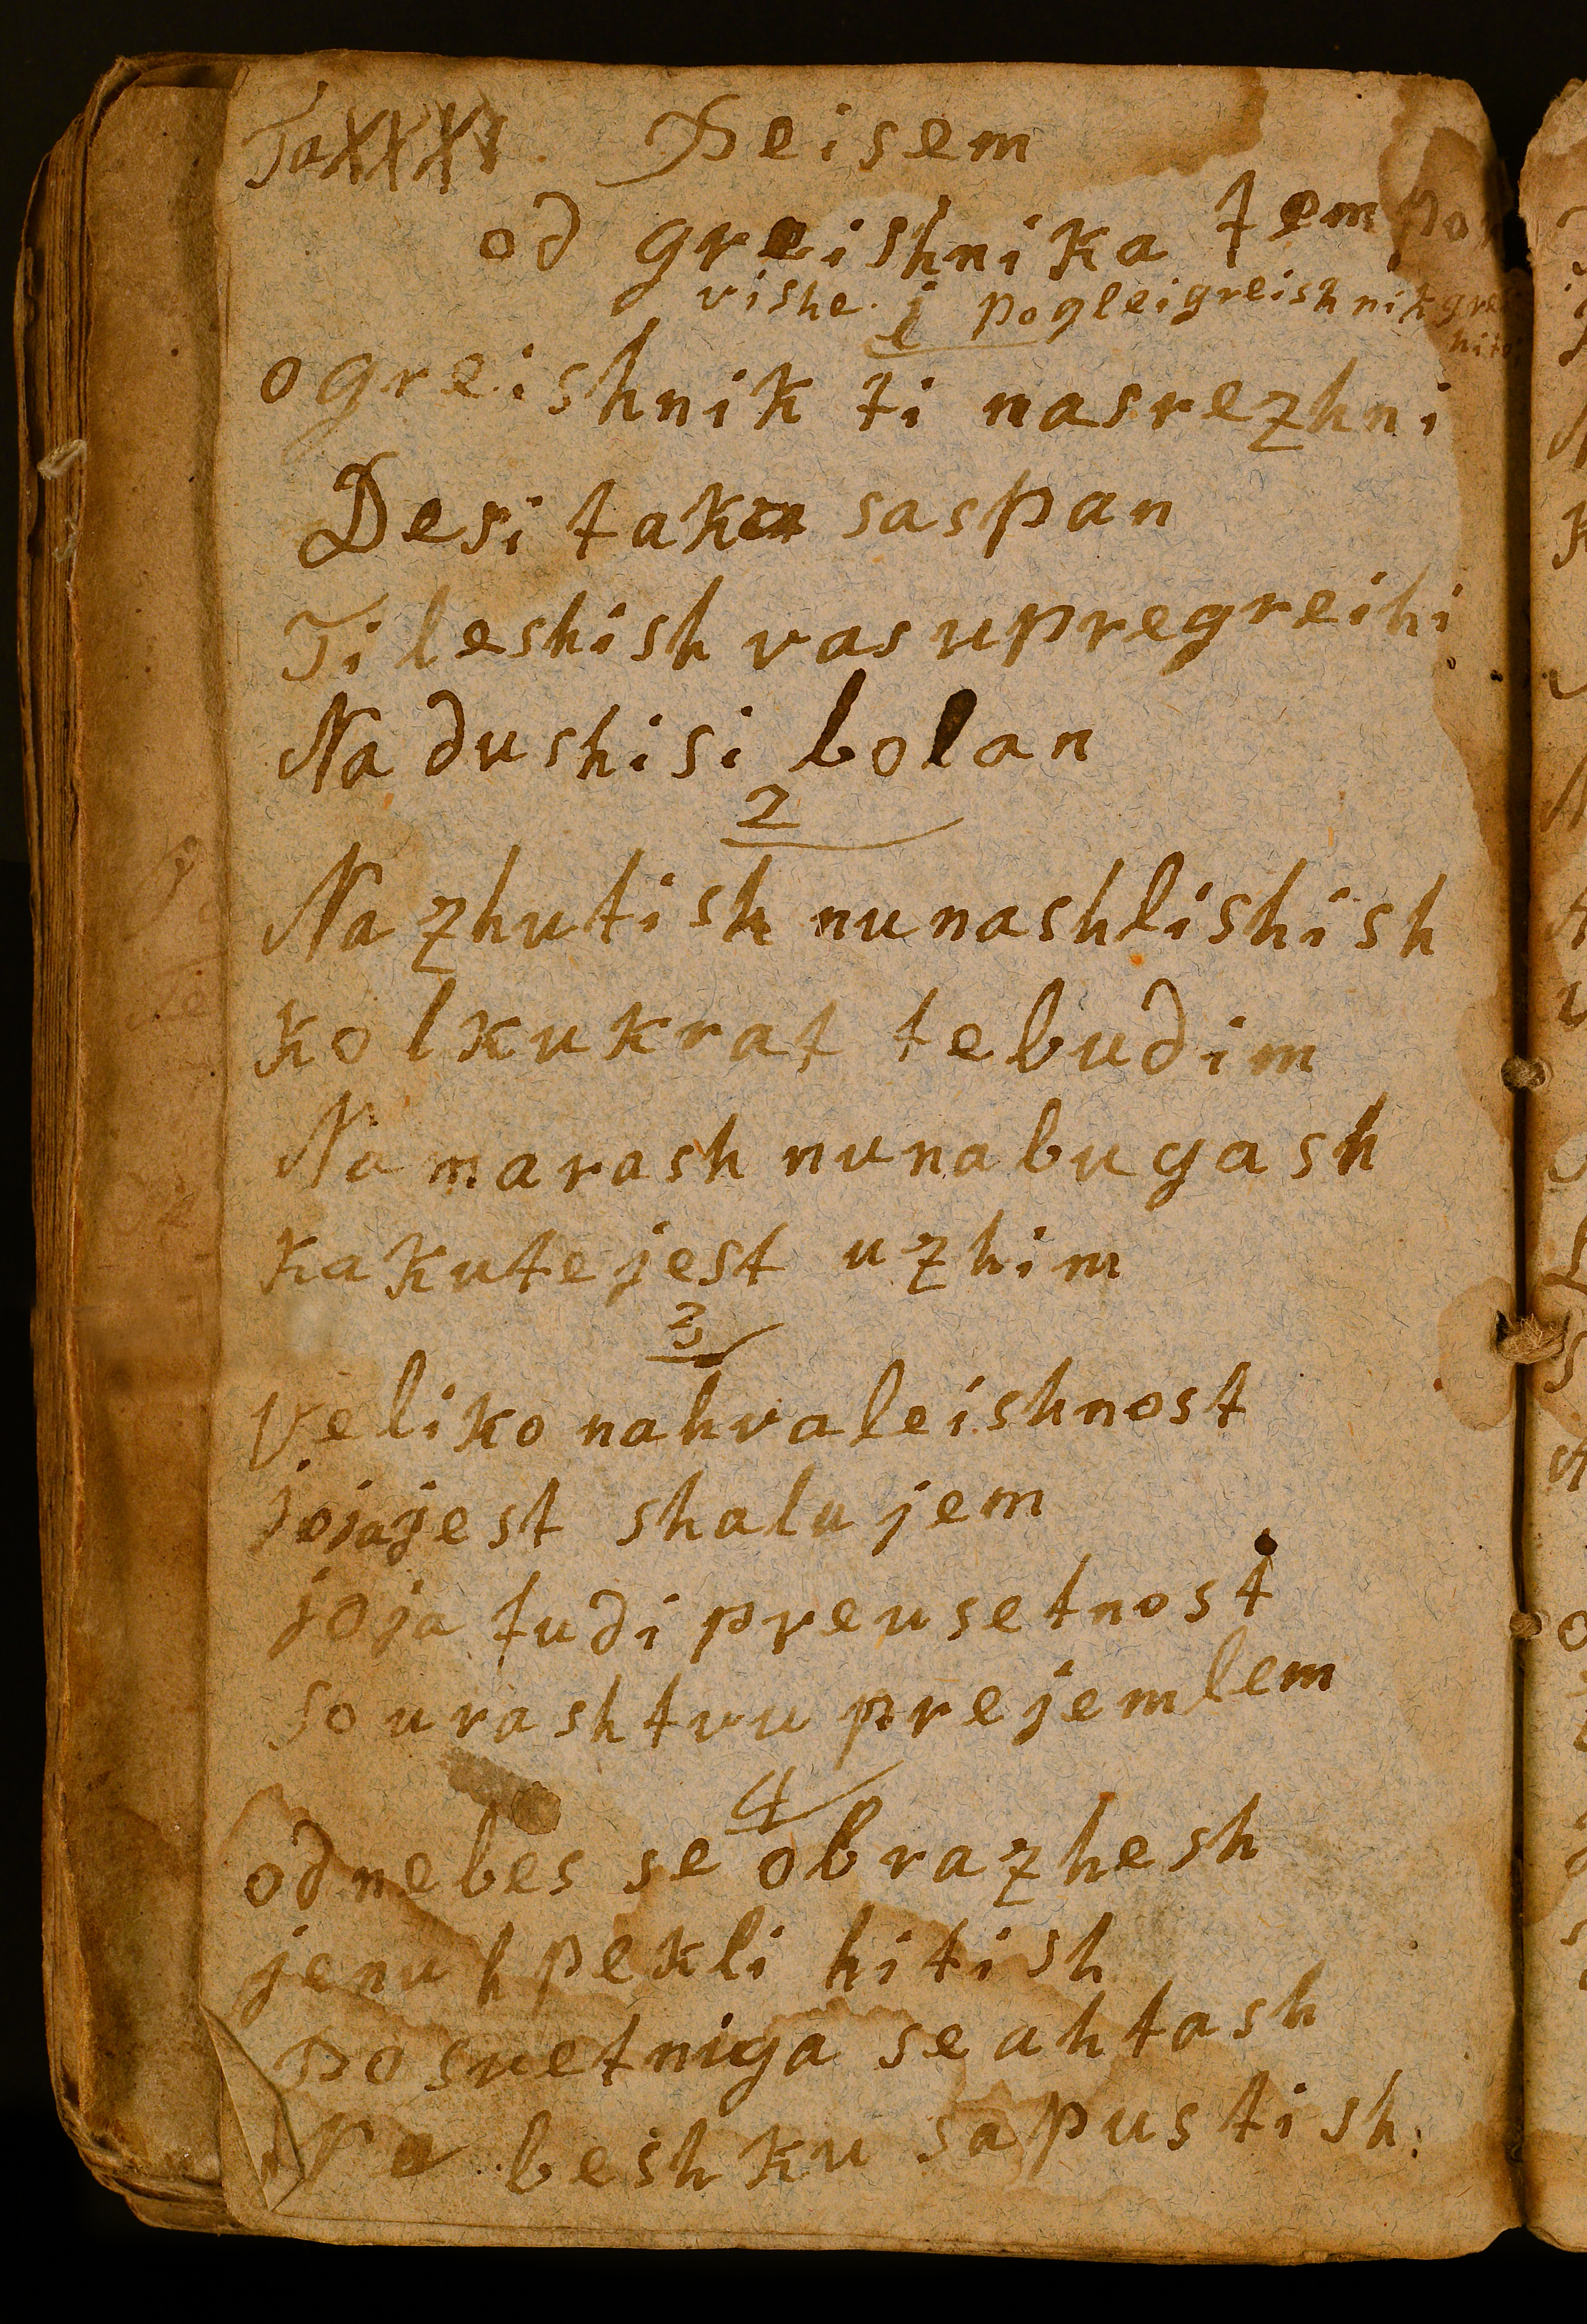 Ta XXXV. Peisem
od greishnika tem
vishe. j pogleigreishnik
1
ogreishnik ti nasrezhni
Desi taku saspan
Ti leshish vas upregreihi
Na dushi si bolan
2
Na zhutish nu nashlishish
kolkukrat te budim
Na marash nu na bugash
kakute jest uzhim
3
Veliko nahvaleishnost
jojajest shalujem
joja tudi preusetnost
sourashtvu prejemlem
4
od nebes se obrazhesh
jenu h pekli hitish
Posvetniga se ahtash
Ne beshku sapustish: